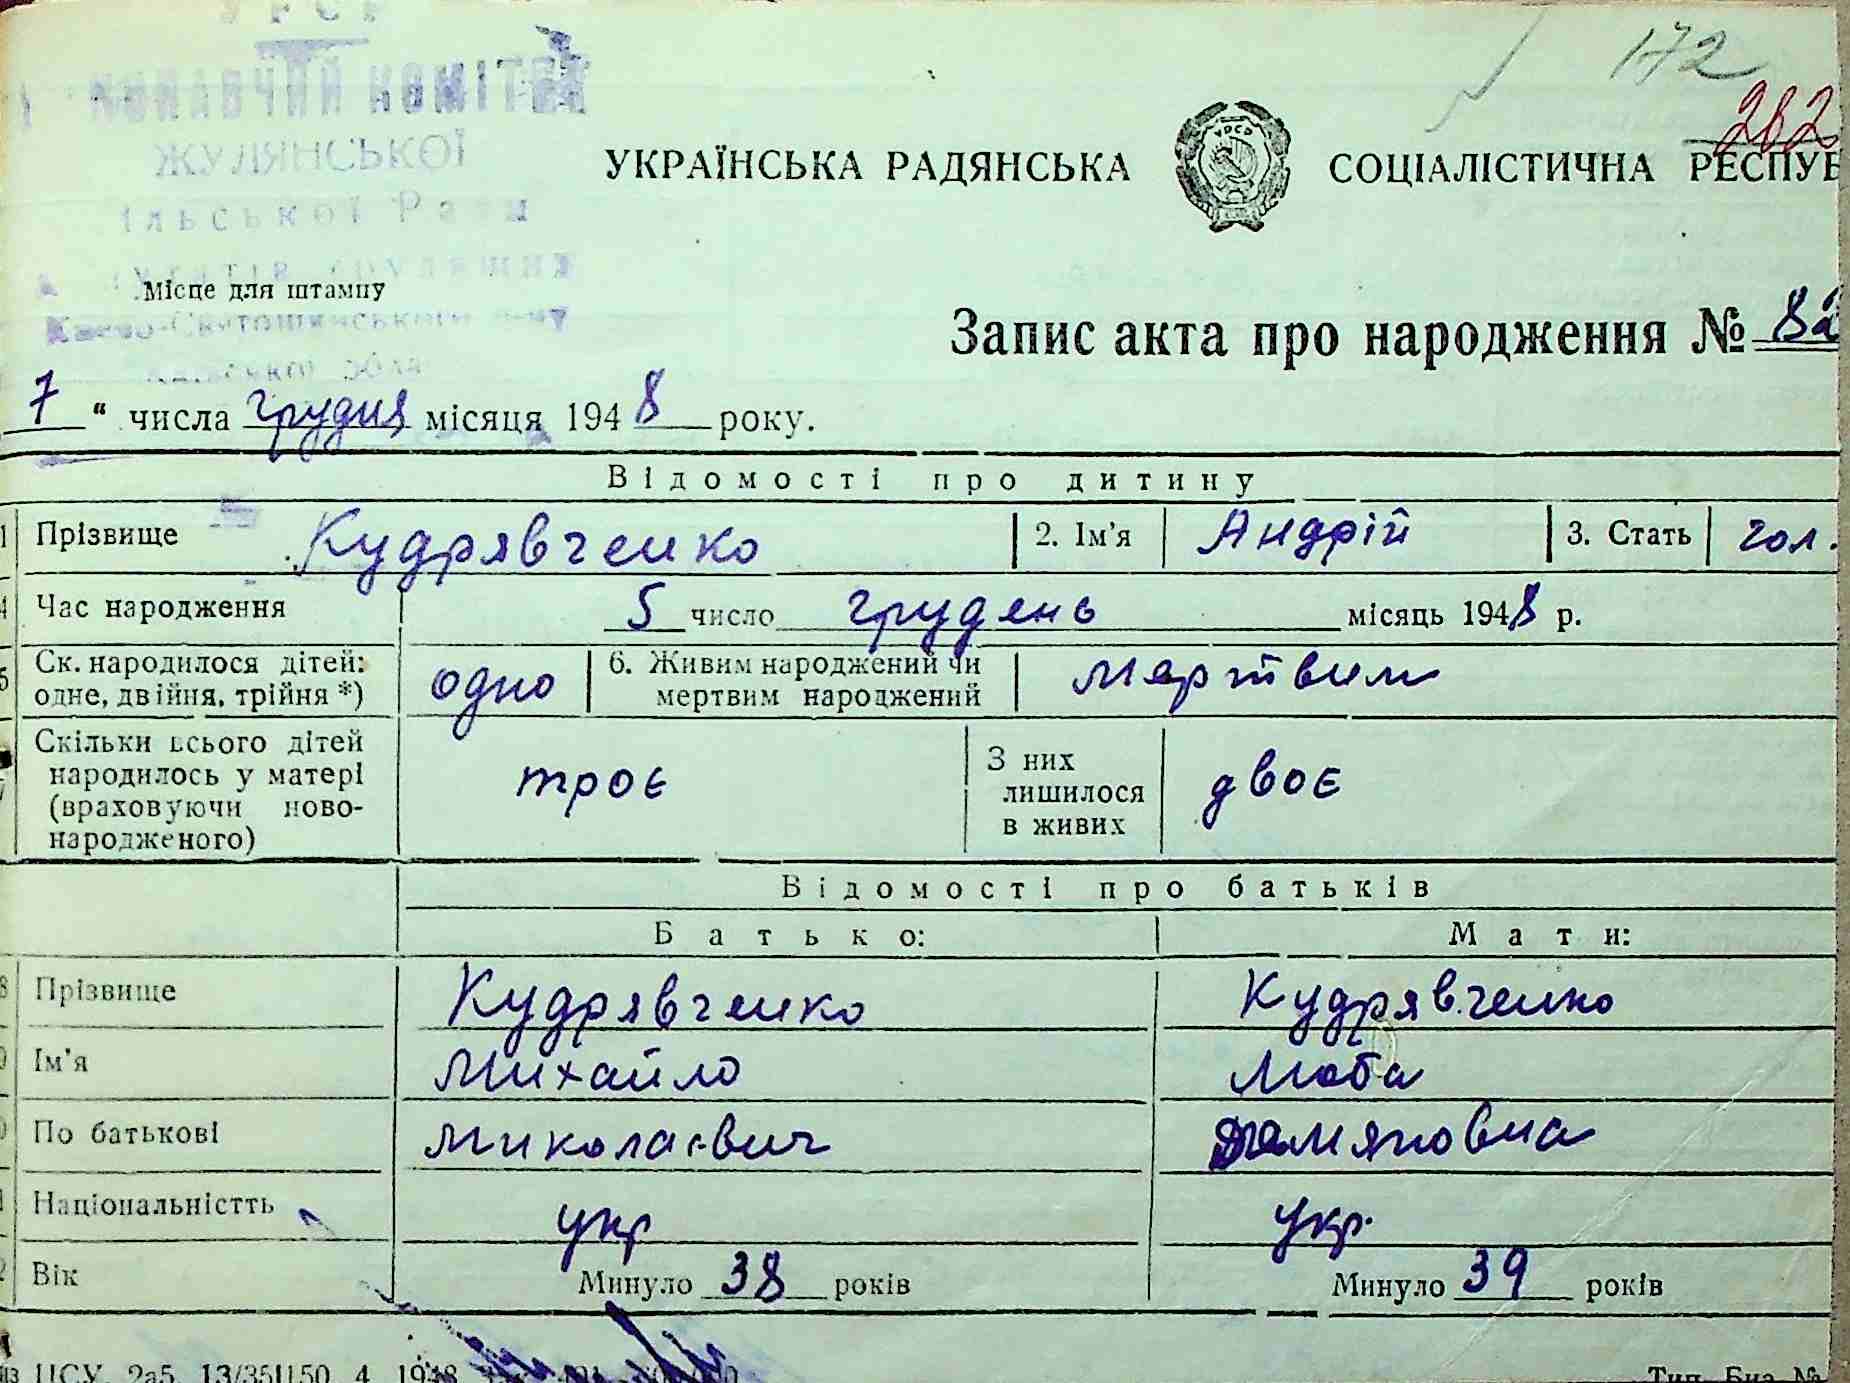 УРСР
КОНАВЧИЙ КОМІТЕТ
ЖУЛЯНСЬКОЇ
ільської Ради
172
282
УКРАЇНСЬКА РАДЯНСЬКА УРСР СОЦІАЛІСТИЧНА РЕСПУБ
Місце для штампу
Києво-Святошинського р-ну
Запис акта про народження № 82
7 “ числа грудня місяця 1948 року.
Відомості про дитину
1 Прізвище Кудрявченко 2. Ім'я Андрій 3. Стать чол.
4 Час народження 5 число грудень місяць 1948 р.
5 Ск. народилося дітей: одне, двійня, трійня *) одно 6. Живим народжений чи мертвим народжений мертвим
7 Скільки всього дітей народилось у матері (враховуючи ново- народженого) троє З них лишилося в живих двоє
Відомості про батьків
Батько: Мати:
8 Прізвище Кудрявченко Кудрявченко
9 Ім'я Михайло Люба
0 По батькові Миколаєвич Дамяновна
1 Національністть укр укр.
2 Вік Минуло 38 років Минуло 39 років
ЦСУ 2а5 13/35Ц50 4 1948
Тип. Биа №